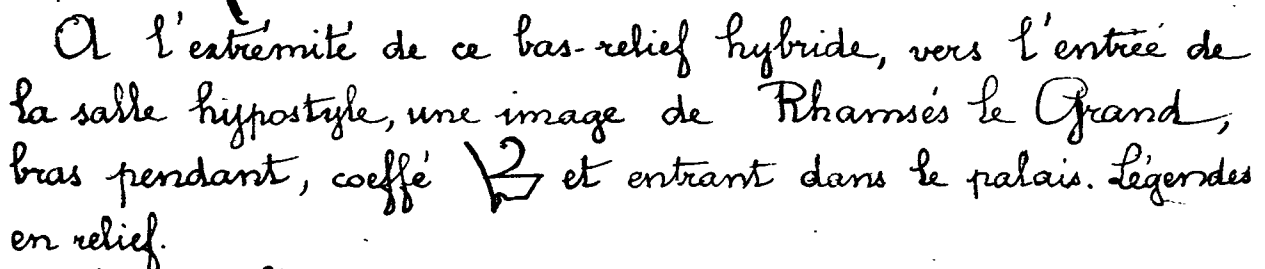 A l'extrémité de ce bas-relief hybride, vers l'entrée de
la salle hypostyle, une image de Rhamsés le Grand,
bras pendant, coeffé 𓋔 et entrant dans le palais. Légendes
en relief.